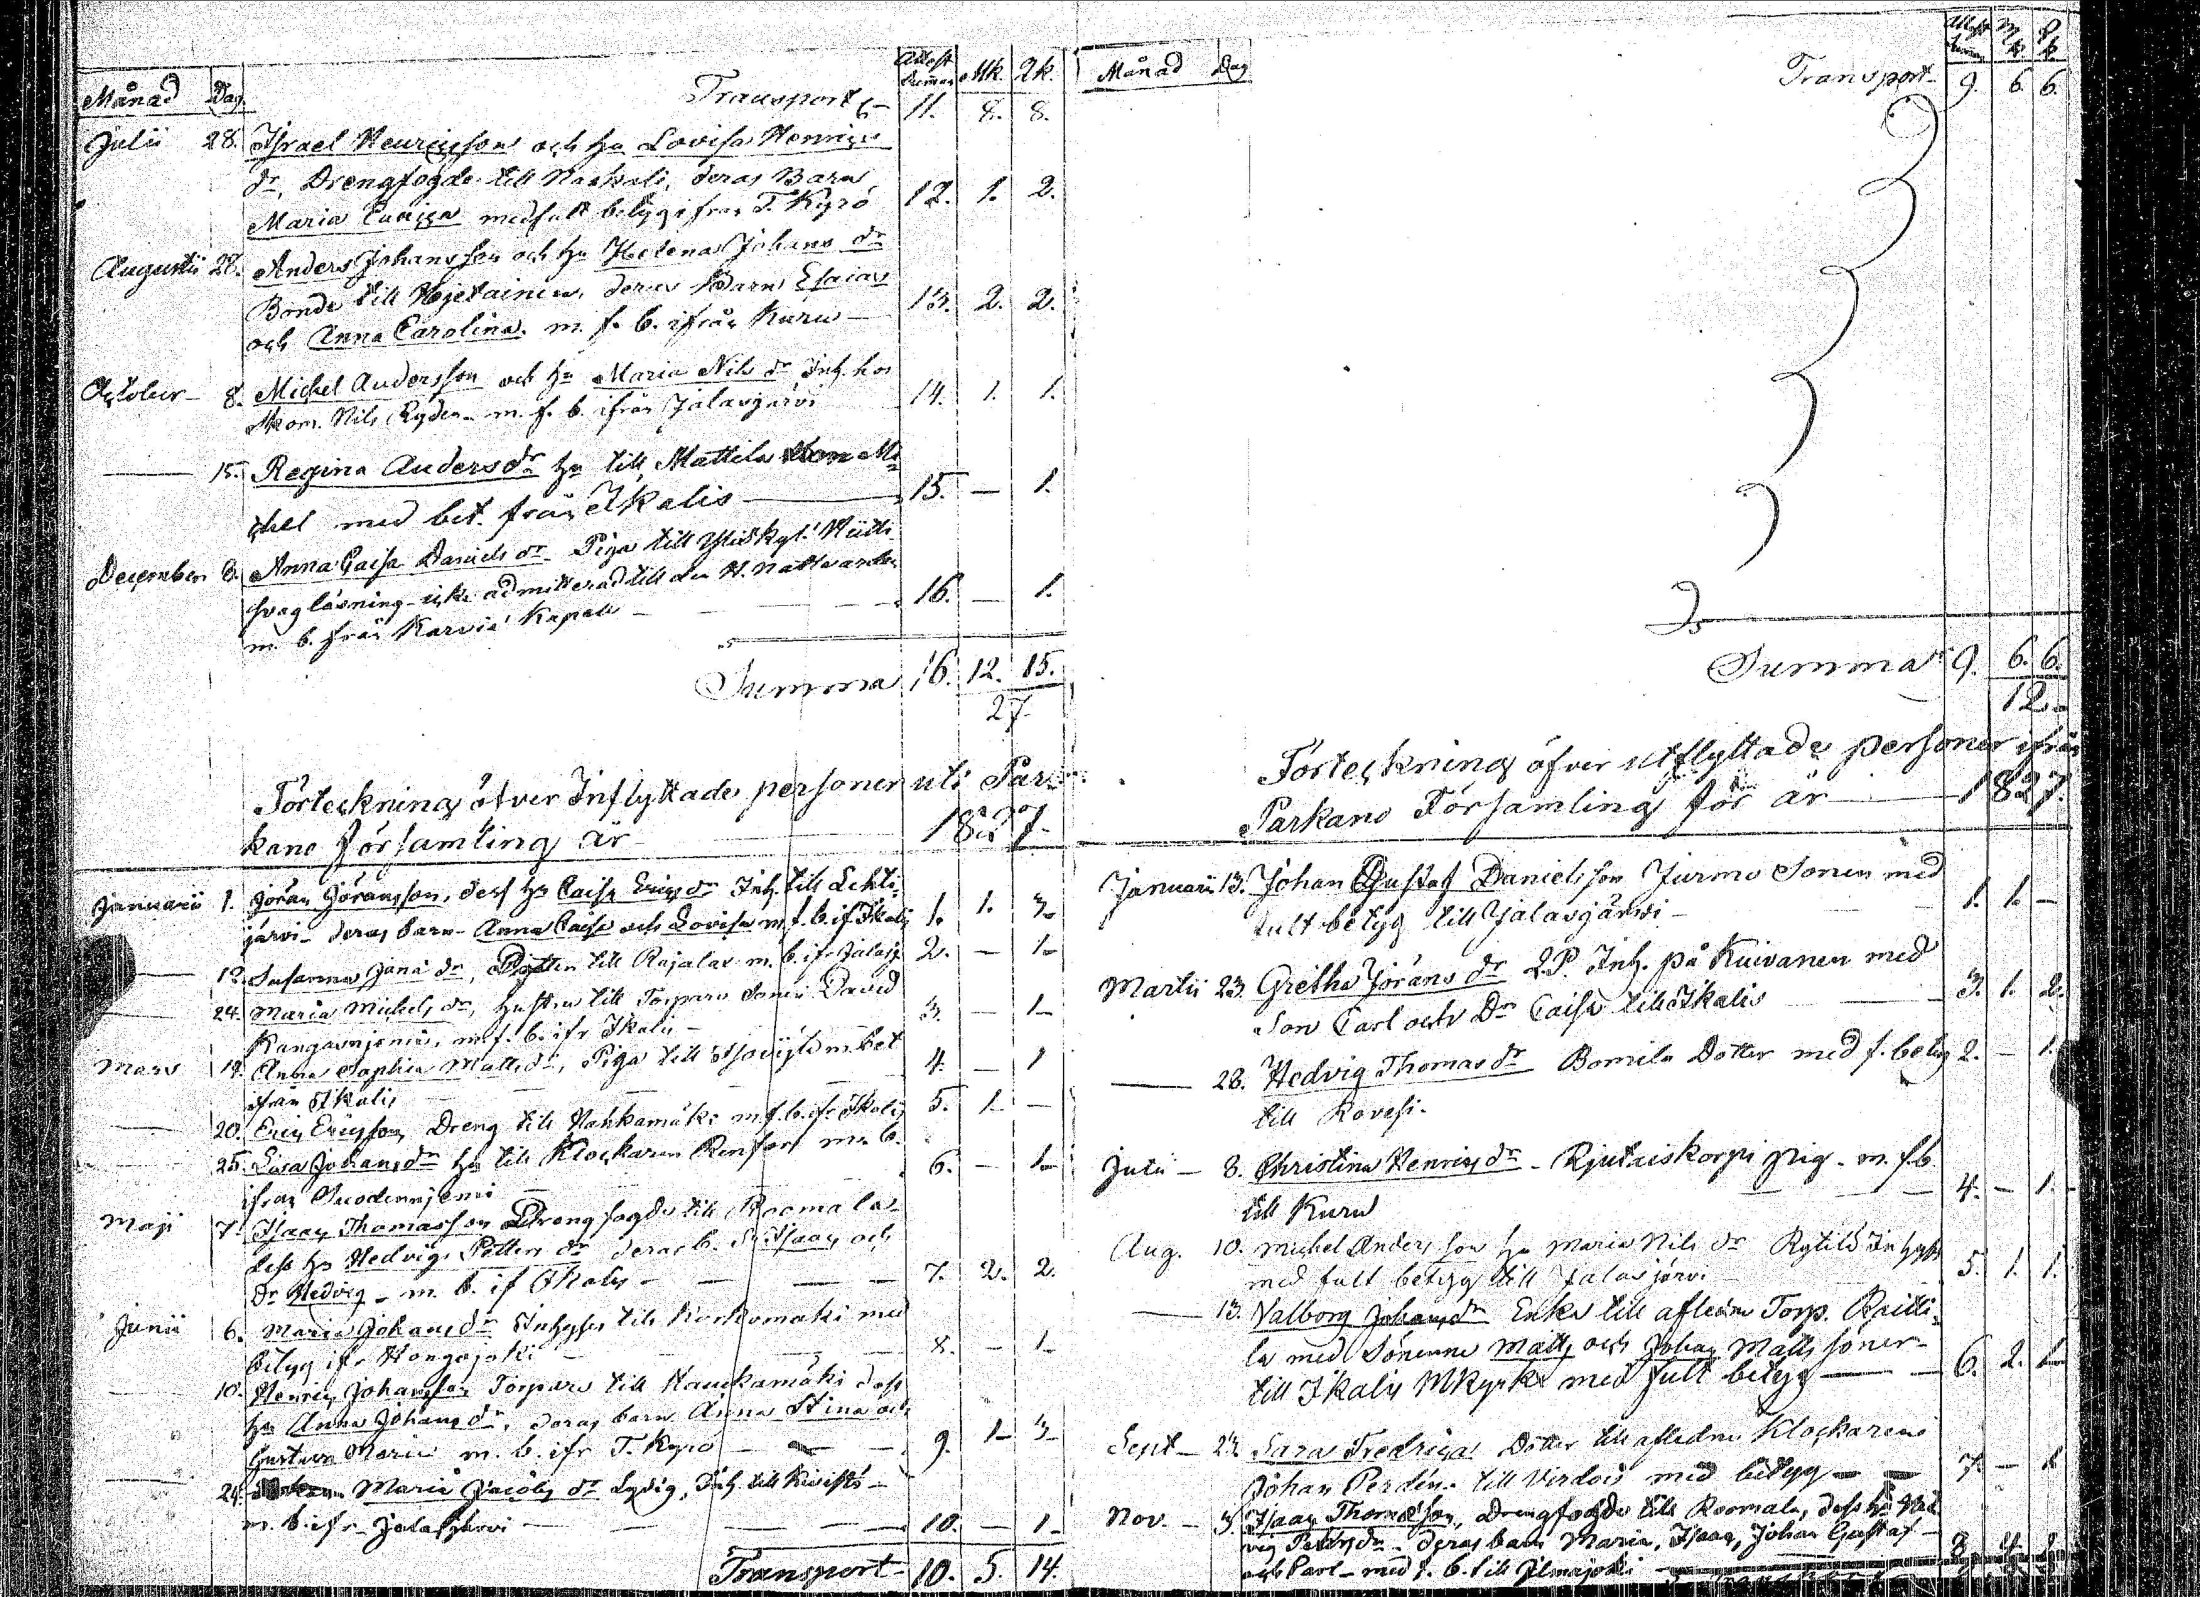 Månad Dag. Attest Numer Mk. Qk.
Transport 11. 8. 8.
Julii 28. Israel Henricsson och hu Lovisa Henrics
dr, Drengfogde till deras Barn
Maria med fult betyg ifrån T. Kyrö 12. 1. 2.
Augustii 27. Anders Johansson och hu Helena Johans dr
Bonde till deras Barn Esaias
och Anna Carolina. m. f. b. ifrån Kuru 13. 2. 2.
October 8. Michel Andersson och hu Maria Nils dr Inh. hos
Nils Ryden m. f. b. ifrån Jalasjärvi 14. 1. 1.
15. Regina Anders dr hu till Mattila Mi
chel med bet. från Ikalis 15. — 1.
December 8. Anna Caisa Daniels dr Piga till
svag läsning icke admitterad till den H. nattvarden
m. b. från Karvia Kapell 16. — 1.
Summa 16. 12. 15.
27.
Förteckning öfver Inflyttade personer uti Par-
kano församling år 1827.
Januarii 1. Jöran Jöransson, dess hu Caisa Erics dr Inh. till Lehti-
järvi deras barn Anna Caisa och Lovisa m. f. b. if Ikalis 1. 1. 3.
12. Susanna dr, till Rajalax m. b. ifr Jalasj 2. — 1.
24. Maria Michels dr, hustru till Torpare Sonen David
m. f. b. ifr Ikalis 3. — 1.
Mars 14. Anna Sophia Matts dr, Piga till m. bet
ifrån Ikalis 4. — 1
20. Eric Ericsson Dreng till m. f. b. ifr Ikalis 5. 1. —
25. Lisa Johans dr hu till Klockaren m. b.
ifrån Suodenniemi 6. — 1.
Maji 7. Isaac Thomasson Drengfogde till Roomala
dess hu Hedvig Petters dr deras b. S. Isaac och
Dr Hedvig m. b. if Ikalis 7. 2. 2.
Junii 6. Maria Johans dr Inhyses till med
betyg ifr Hongojoki 8. — 1.
10. Henric Johansson Torpare till Haukamäki dess
hu Anna Johans dr, deras barn Anna Stina och
Gustava Maria m. b. ifr T. Kyrö 9. 1. 3.
24. Maria Jacobs dr Lydig, Inh. till
m. b. ifr Jalasjärvi 10. — 1.
Transport 10. 5. 14.
Månad Dag
Transport 9. 6. 6.
Summa 9. 6. 6.
12.
Förteckning öfver utflyttade personer ifrån
Parkano Församling för år 1827.
Januarii 13. Johan Gustaf Danielsson Jurmo Sonen med
fult betyg till Jalasjärvi 1. 1. —
Martii 23. Gretha Jörans dr Q.P. Inh. på Kuivanen med
Son Carl och Dr Caisa till Ikalis 3. 1. 2.
28. Hedvig Thomas dr Bomila Dotter med f. betyg 2. — 1.
till Kovesi.
Julii 8. Christina Henrics dr pig. m. f. b.
till Kuru 4. — 1.
Aug. 10. Michel Andersson hu Maria Nils dr Inhyses
med fult betyg till Jalasjärvi 5. 1. 1.
13. Valborg Johans dr Enka till afledne Torp. Raitti-
la med Sönerne Matts och Johan Matts söner
till Ikalis MKyrka med fult betyg 6. 2. 1.
Sept 23. Sara Fredrica Dotter till afledne Klockarens
Johan Perdén till Virdois med betyg 7. — 1
Nov. 3. Isaac Thomasson, Drengfogde till Roomala, dess hu Hed
vig Petters dr deras barn Maria, Isaac, Johan Gustaf
och Carl med f. b. till Ilmajoki 8.